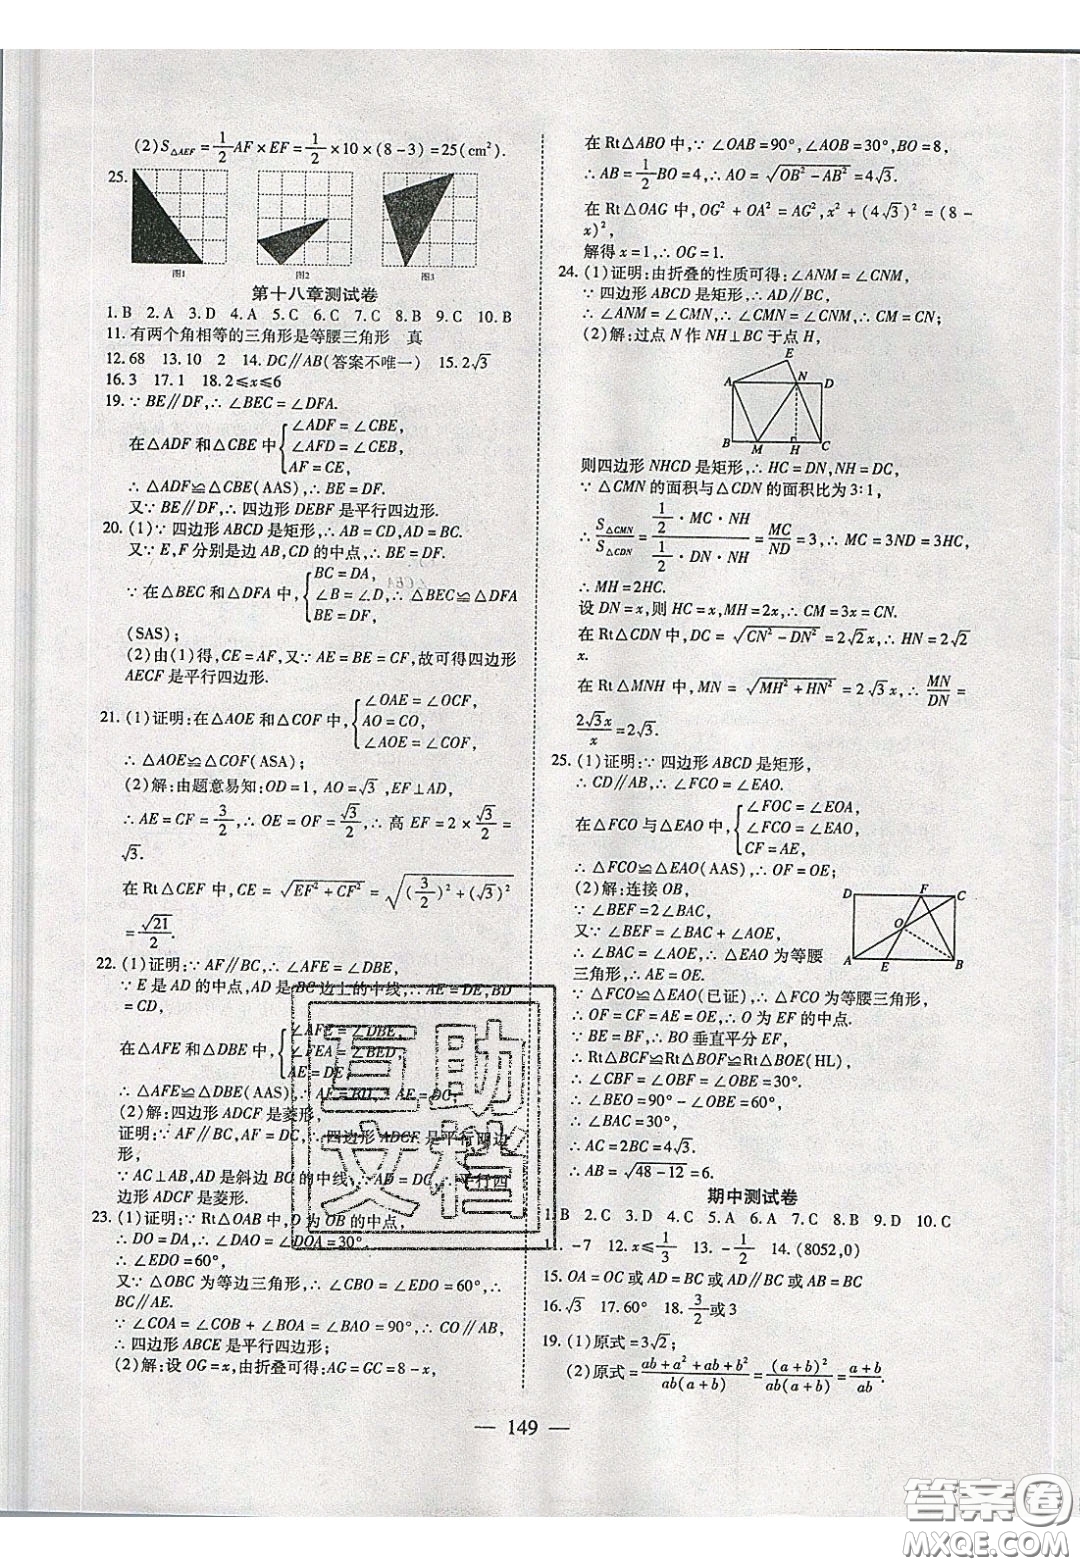 (2)S△AEF=1/2 AF×EF=1/2×10×(8-3)=25(cm²).
25.
图1
图2
图3
第十八章测试卷
1.B 2.A 3.D 4.A 5.C 6.C 7.C 8.B 9.C 10.B
11.有两个角相等的三角形是等腰三角形 真
12.68 13.10 2 14.DC∥AB(答案不唯一) 15.2√3
16.3 17.1 18.2≤x≤6
19.∵BE∥DF,∴∠BEC=∠DFA.
∠ADF=∠CBE,
在△ADF和△CBE中{∠AFD=∠CEB,
AF=CE,
∴△ADF≌△CBE(AAS),∴BE=DF.
又∵BE∥DF,∴四边形DEBF是平行四边形.
20.(1)∵四边形ABCD是矩形,∴AB=CD,AD=BC.
又∵E,F分别是边AB,CD的中点,∴BE=DF.
BC=DA,
∵在△BEC和△DFA中,{∠B=∠D,∴△BEC≌△DFA
BE=DF,
(SAS);
(2)由(1)得,CE=AF,又∵AE=BE=CF,故可得四边形
AECF是平行四边形.
∠OAE=∠OCF,
21.(1)证明:在△AOE和△COF中,{AO=CO,
∠AOE=∠COF,
∴△AOE≌△COF(ASA);
(2)解:由题意易知:OD=1,AO=√3,EF⊥AD,
∴AE=CF=3/2,∴OE=OF=√3/2,∴高EF=2×√3/2=
√3.
在Rt△CEF中,CE=√(EF²+CF²)=√((3/2)²+(√3)²
=√21/2.
22.(1)证明:∵AF∥BC,∴∠AFE=∠DBE,
∵E是AD的中点,AD是BC边上的中线,∴AE=DE,BD
=CD,
∠AFE=∠DBE,
在△AFE和△DBE中,{∠FEA=∠BED
AE=DE,
∴△AFE≌△DBE(AAS),∴AF=BD,∴AF=DC;
(2)解:四边形ADCF是菱形,
证明:∵AF∥BC,AF=DC,∴四边形ADCF是平行四边
形,
∵AC⊥AB,AD是斜边BC的中线,∴AD=DC,∴平行四
边形ADCF是菱形.
23.(1)证明:∵Rt△OAB中,D为OB的中点,
∴DO=DA,∴∠DAO=∠DOA=30°,
∴∠EDO=60°,
又∵△OBC为等边三角形,∴∠CBO=∠EDO=60°,∴
BC∥AE.
∵∠COA=∠COB+∠BOA=∠BAO=90°,∴CO∥AB,
∴四边形ABCE是平行四边形;
(2)解:设OG=x,由折叠可得:AG=GC=8-x,
在Rt△ABO中,∵∠OAB=90°,∠AOB=30°,BO=8,
∴AB=1/2 BO=4,∴AO=√(OB²-AB²)=4√3.
在Rt△OAG中,OG²+OA²=AG²,x²+(4√3)²=(8-
x)²,
解得x=1,∴OG=1.
24.(1)证明:由折叠的性质可得:∠ANM=∠CNM,
∵四边形ABCD是矩形,∴AD∥BC,
∴∠ANM=∠CMN,∴∠CMN=∠CNM,∴CM=CN;
(2)解:过点N作NH⊥BC于点H,
E
A N D
B M H C
则四边形NHCD是矩形,∴HC=DN,NH=DC,
∵△CMN的面积与△CDN的面积比为3:1,
∴S△CMN/S△CDN=(1/2·MC·NH)/(1/2·DN·NH)=MC/ND=3,∴MC=3ND=3HC,
∴MH=2HC.
设DN=x,则HC=x,MH=2x,∴CM=3x=CN.
在Rt△CDN中,DC=√(CN²-DN²)=2√2x,∴HN=2√2
x.
在Rt△MNH中,MN=√(MH²+HN²)=2√3x,∴MN/DN=
2√3x/x=2√3.
25.(1)证明:∵四边形ABCD是矩形,
∴CD∥AB,∴∠FCO=∠EAO.
∠FOC=∠EOA,
在△FCO与△EAO中,{∠FCO=∠EAO,
CF=AE,
∴△FCO≌△EAO(AAS),∴OF=OE;
(2)解:连接OB,
∵∠BEF=2∠BAC,
又∵∠BEF=∠BAC+∠AOE,
∴∠BAC=∠AOE,∴△EAO为等腰
三角形,∴AE=OE.
D F C
O
A E B
∵△FCO≌△EAO(已证),∴△FCO为等腰三角形,
∴OF=CF=AE=OE,∴O为EF的中点.
∵BE=BF,∴BO垂直平分EF,
∴Rt△BCF≌Rt△BOF≌Rt△BOE(HL),
∴∠CBF=∠OBF=∠OBE=30°.
∴∠BEO=90°-∠OBE=60°,
∴∠BAC=30°,
∴AC=2BC=4√3.
∴AB=√(48-12)=6.
期中测试卷
1.B 2.C 3.D 4.C 5.A 6.A 7.C 8.B 9.D 10.C
11.-7 12.x≤1/3 13.-1/2 14.(8052,0)
15.OA=OC或AD=BC或AD∥BC或AB=BC
16.√3 17.60° 18.3/2或3
19.(1)原式=3√2;
(2)原式=(ab+a²+ab+b²)/(ab(a+b))=(a+b)²/(ab(a+b))=(a+b)/ab.
— 149 —
互助
文档
答案卷
MXQE.COM